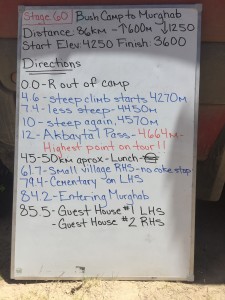 Stage 60 Bush Camp to Murghab
Distance: 86km - ↑600m ↓1250
Start Elev: 4250 Finish: 3600
Directions
0.0 - R out of camp
4.6 - steep climb starts 4270m
7.4 - less steep - 4450m
10 - steep again, 4570m
12 - Akbaytal Pass - 4664m -
Highest point on tour!!
45-50km aprox - Lunch -
61.7 - Small village RHS - no coke stop
79.4 - Cementary on LHS
84.2 - Entering Murghab
85.5 - Guest House #1 LHS
- Guest House #2 RHS